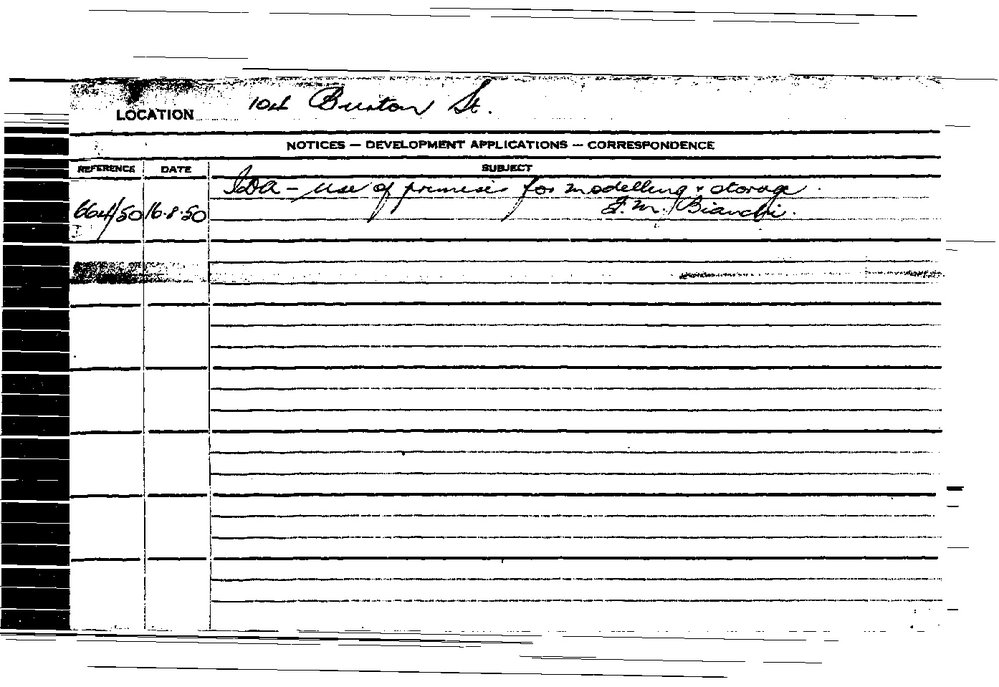 LOCATION 104 Burton St.
NOTICES — DEVELOPMENT APPLICATIONS — CORRESPONDENCE
REFERENCE DATE SUBJECT
IDA - Use of premises for modelling & storage.
664/50 16.8.50 F.M. Bianchi.